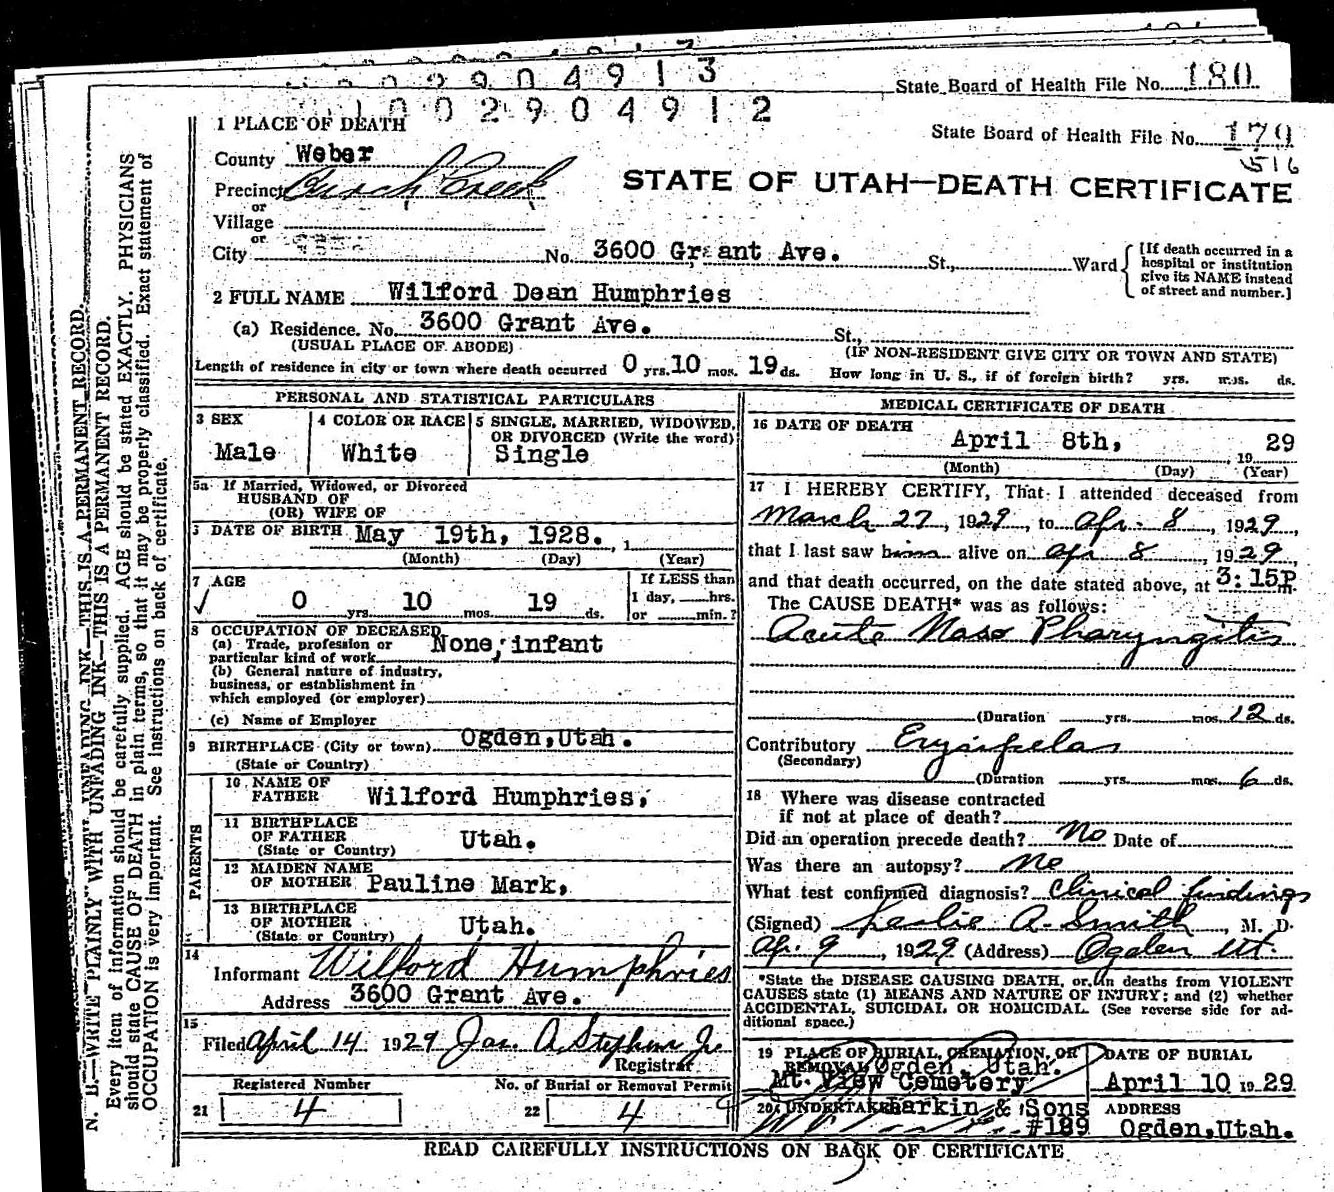 2904913
State Board of Health File No. 180
1002904912
State Board of Health File No. 179
516
1 PLACE OF DEATH
County Weber
STATE OF UTAH—DEATH CERTIFICATE
Precinct Creek
or
Village
or
City No. 3600 Grant Ave. St., Ward
[If death occurred in a hospital or institution give its NAME instead of street and number.]
2 FULL NAME Wilford Dean Humphries
(a) Residence. No. 3600 Grant Ave. St.,
(USUAL PLACE OF ABODE) (IF NON-RESIDENT GIVE CITY OR TOWN AND STATE)
Length of residence in city or town where death occurred 0 yrs. 10 mos. 19 ds. How long in U. S., if of foreign birth? yrs. mos. ds.
PERSONAL AND STATISTICAL PARTICULARS
3 SEX
Male
4 COLOR OR RACE
White
5 SINGLE, MARRIED, WIDOWED,
OR DIVORCED (Write the word)
Single
5a If Married, Widowed, or Divorced
HUSBAND OF
(OR) WIFE OF
DATE OF BIRTH May 19th, 1928. , 1
(Month) (Day) (Year)
7 AGE
0 yrs. 10 mos. 19 ds.
If LESS than
1 day, hrs.
or min.?
8 OCCUPATION OF DECEASED
(a) Trade, profession or
particular kind of work None, infant
(b) General nature of industry,
business, or establishment in
which employed (or employer)
(c) Name of Employer
9 BIRTHPLACE (City or town) Ogden, Utah.
(State or Country)
PARENTS
10 NAME OF
FATHER Wilford Humphries,
11 BIRTHPLACE
OF FATHER Utah.
(State or Country)
12 MAIDEN NAME
OF MOTHER Pauline Mark,
13 BIRTHPLACE
OF MOTHER Utah.
(State or Country)
14
Informant Wilford Humphries
Address 3600 Grant Ave.
15
Filed April 14 1929 Jas. A. Stephens Jr
Registrar
Registered Number No. of Burial or Removal Permit
21 4 22 4
MEDICAL CERTIFICATE OF DEATH
16 DATE OF DEATH
April 8th, 19 29
(Month) (Day) (Year)
17 I HEREBY CERTIFY, That I attended deceased from
March 27, 1929, to Apr. 8, 1929,
that I last saw him alive on Apr 8, 1929,
and that death occurred, on the date stated above, at 3:15P m.
The CAUSE DEATH* was as follows:
Acute Naso Pharyngitis
(Duration yrs. mos. 12 ds.
Contributory Erysipelas
(Secondary)
(Duration yrs. mos. 6 ds.
18 Where was disease contracted
if not at place of death?
Did an operation precede death? No Date of
Was there an autopsy? No
What test confirmed diagnosis? Clinical findings
(Signed) Leslie A. Smith, M. D.
Apr. 9, 1929 (Address) Ogden Ut.
*State the DISEASE CAUSING DEATH, or, in deaths from VIOLENT
CAUSES state (1) MEANS AND NATURE OF INJURY; and (2) whether
ACCIDENTAL, SUICIDAL OR HOMICIDAL. (See reverse side for ad-
ditional space.)
19 PLACE OF BURIAL, CREMATION, OR
REMOVAL Ogden, Utah.
Mt. View Cemetery
DATE OF BURIAL
April 10 19 29
20 UNDERTAKER Larkin & Sons
#189
ADDRESS
Ogden, Utah.
READ CAREFULLY INSTRUCTIONS ON BACK OF CERTIFICATE
N. B.—WRITE PLAINLY WITH UNFADING INK—THIS IS A PERMANENT RECORD.
Every item of information should be carefully supplied. AGE should be stated EXACTLY. PHYSICIANS
should state CAUSE OF DEATH in plain terms, so that it may be properly classified. Exact statement of
OCCUPATION is very important. See instructions on back of certificate.